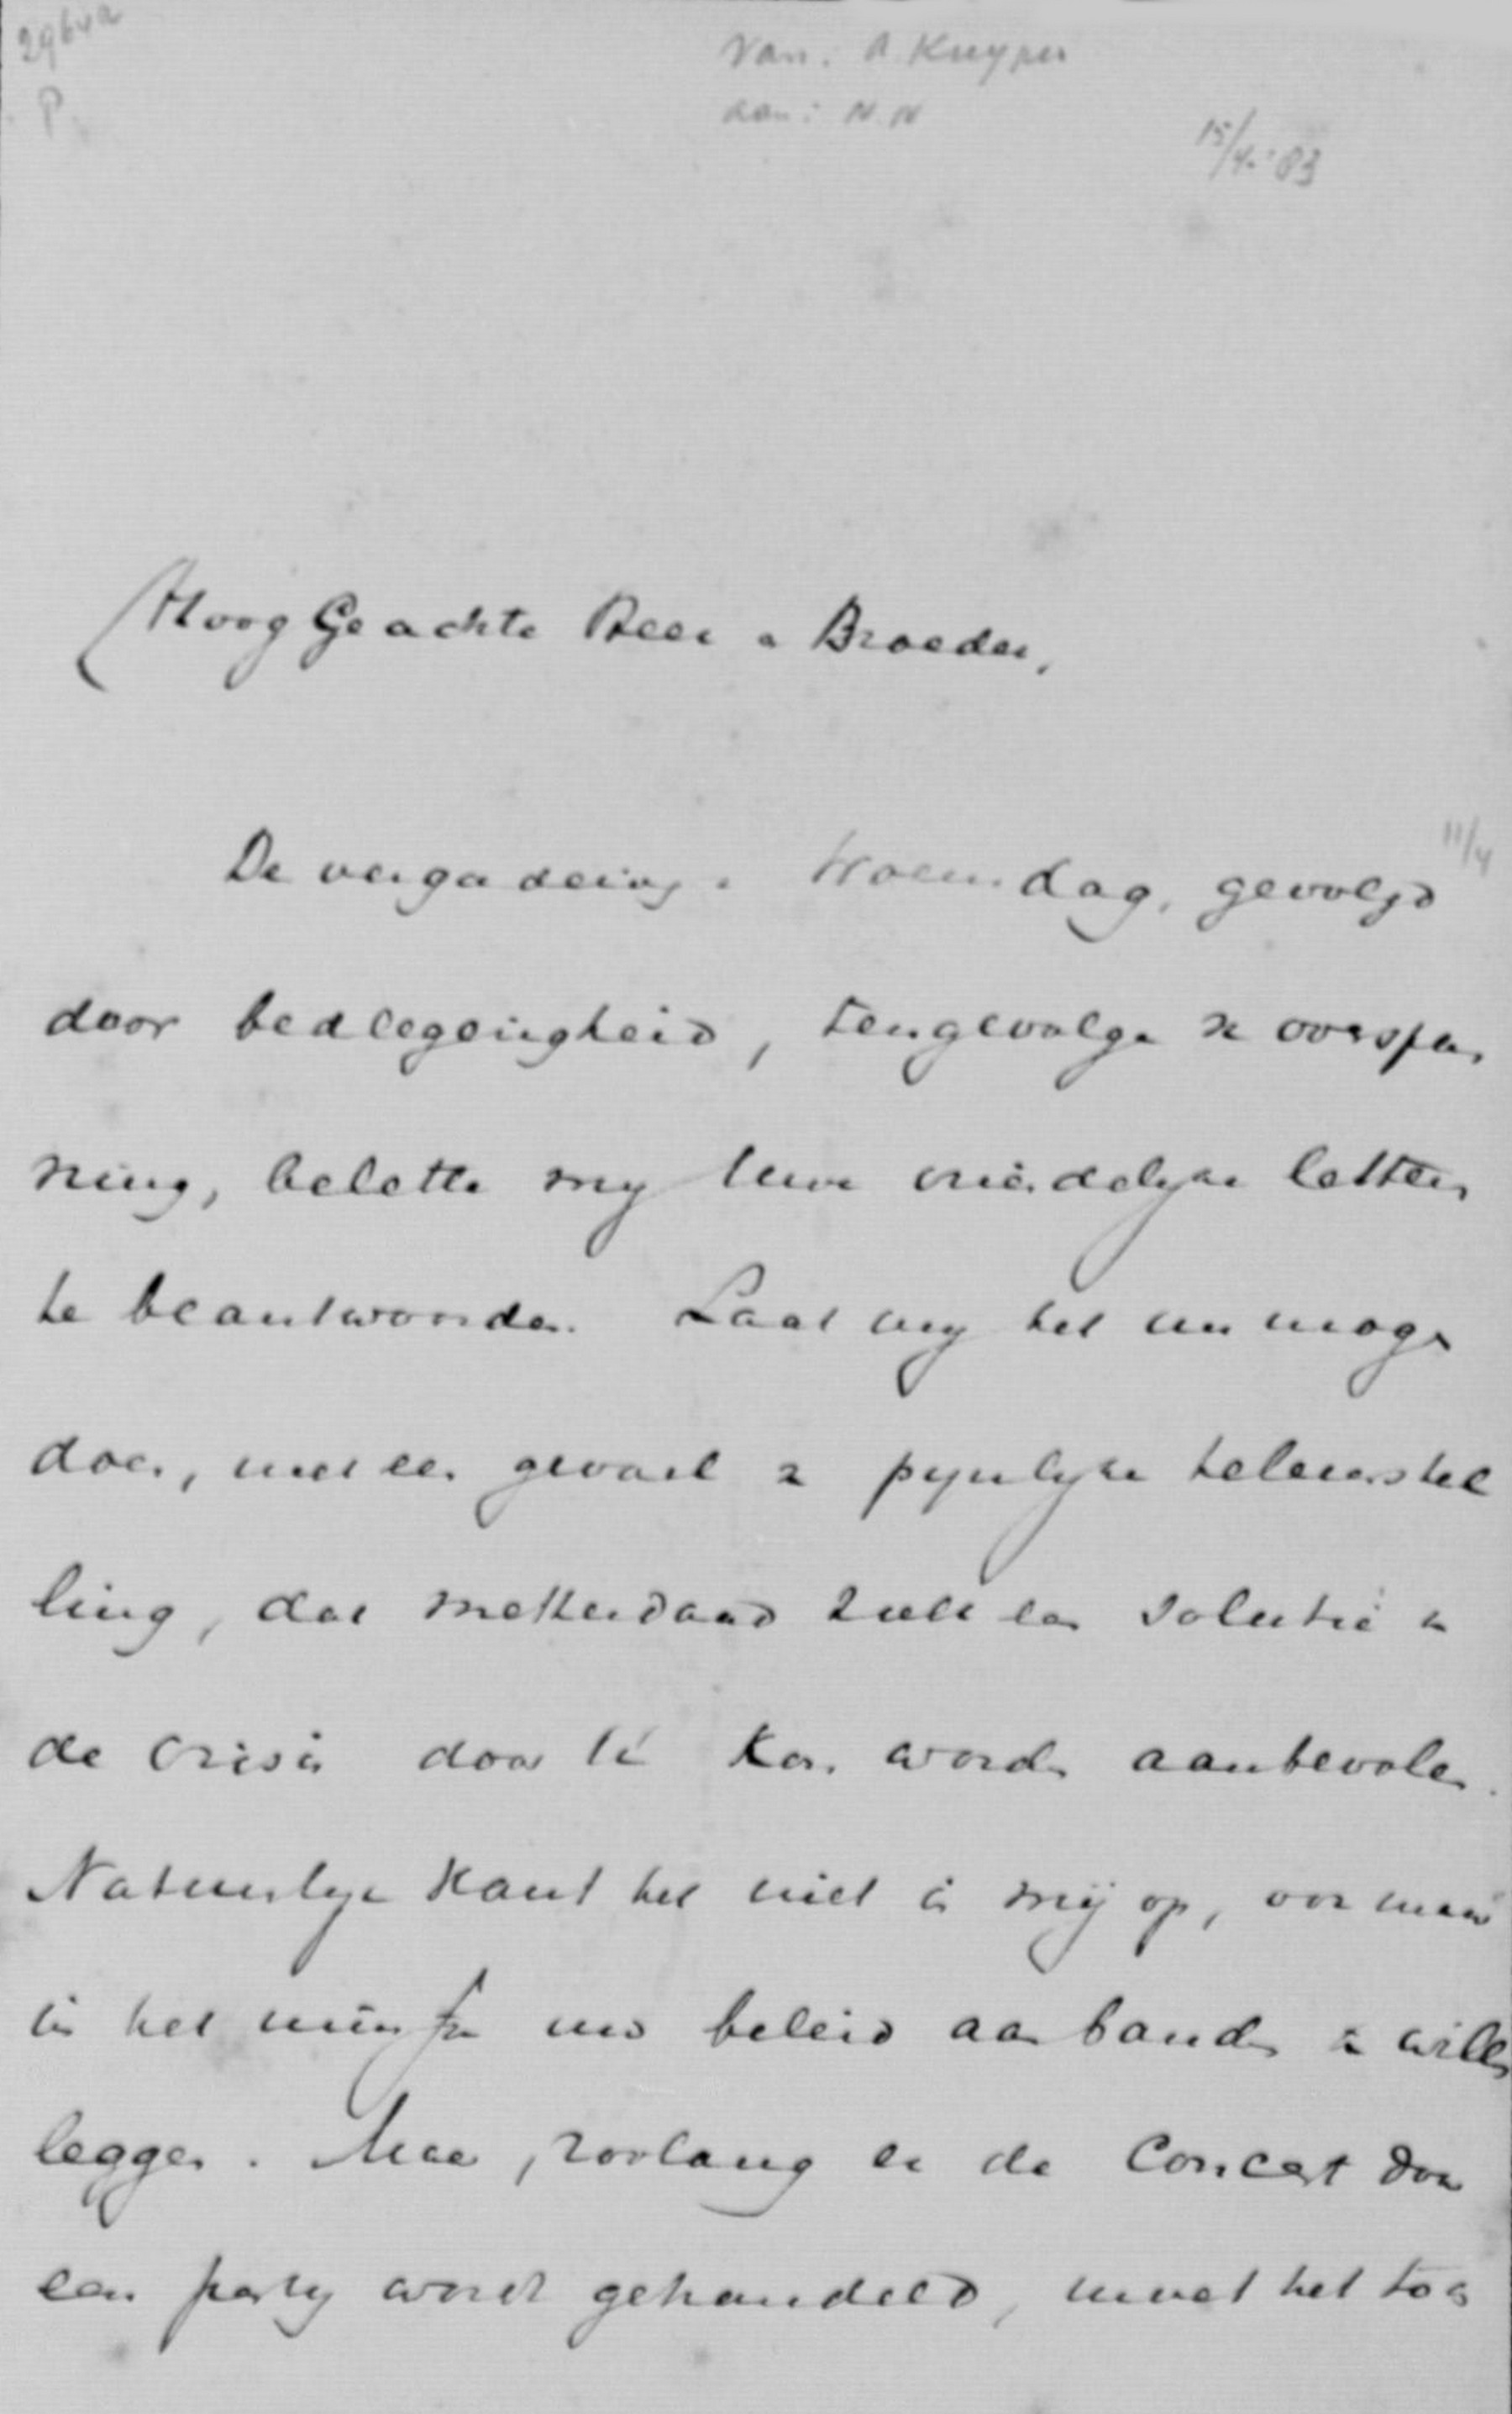 2964a
P.
van: A. Kuyper
aan: N.N
15/4.'83
HoogGeachte Heer en Broeder,
11/4
De vergadering v. Woensdag, gevolgd
door bedlegerigheid, tengevolge v overspan
ning, belette mij Uwe vriendelijke letteren
te beantwoorden. Laat mij het nu mogen
doen, met een gevoel v pijnlijke teleurstel
ling, dat metterdaad zulk een solutie v
de crisis door U kon worden aanbevolen.
Natuurlijk komt het niet in mij op, ook maar
in het minst uw beleid aan banden te willen
leggen. Maar, zoolang er de concert door
een partij wordt gehandeld, moet het toch